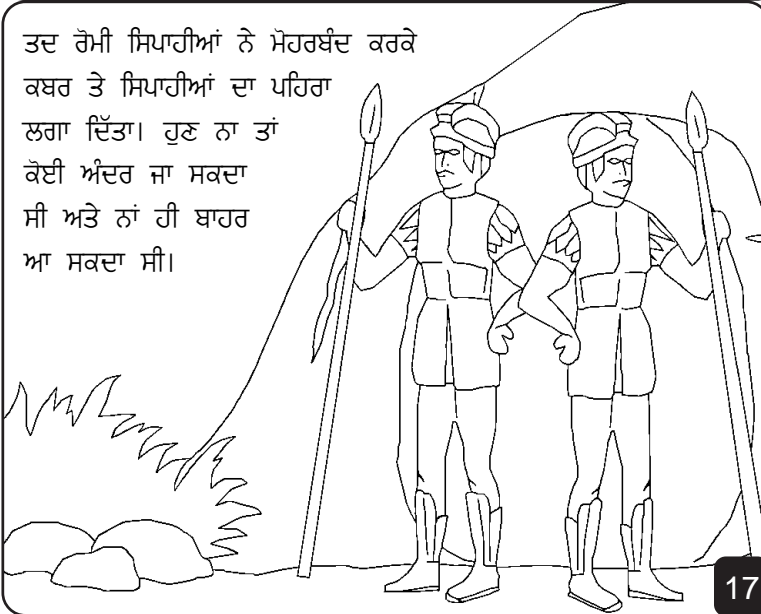 ਤਦ ਰੋਮੀ ਸਿਪਾਹੀਆਂ ਨੇ ਮੋਹਰਬੰਦ ਕਰਕੇ
ਕਬਰ ਤੇ ਸਿਪਾਹੀਆਂ ਦਾ ਪਹਿਰਾ
ਲਗਾ ਦਿੱਤਾ। ਹੁਣ ਨਾ ਤਾਂ
ਕੋਈ ਅੰਦਰ ਜਾ ਸਕਦਾ
ਸੀ ਅਤੇ ਨਾਂ ਹੀ ਬਾਹਰ
ਆ ਸਕਦਾ ਸੀ।
17